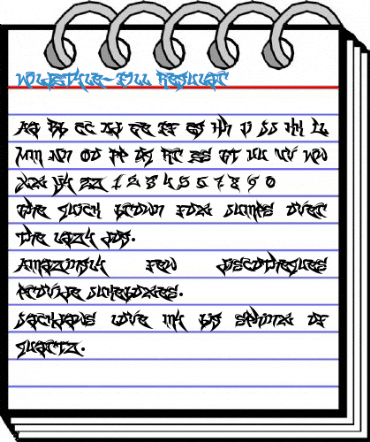 Wildstyle-Fill Regular
Aa Bb Cc Dd Ee Ff Gg Hh Ii Jj Kk Ll
Mm Nn Oo Pp Qq Rr Ss Tt Uu Vv Ww
Xx Yy Zz 1 2 3 4 5 6 7 8 9 0
The quick brown fox jumps over
the lazy dog.
Amazingly few discotheques
provide jukeboxes.
Jackdaws love my big sphinx of
quartz.